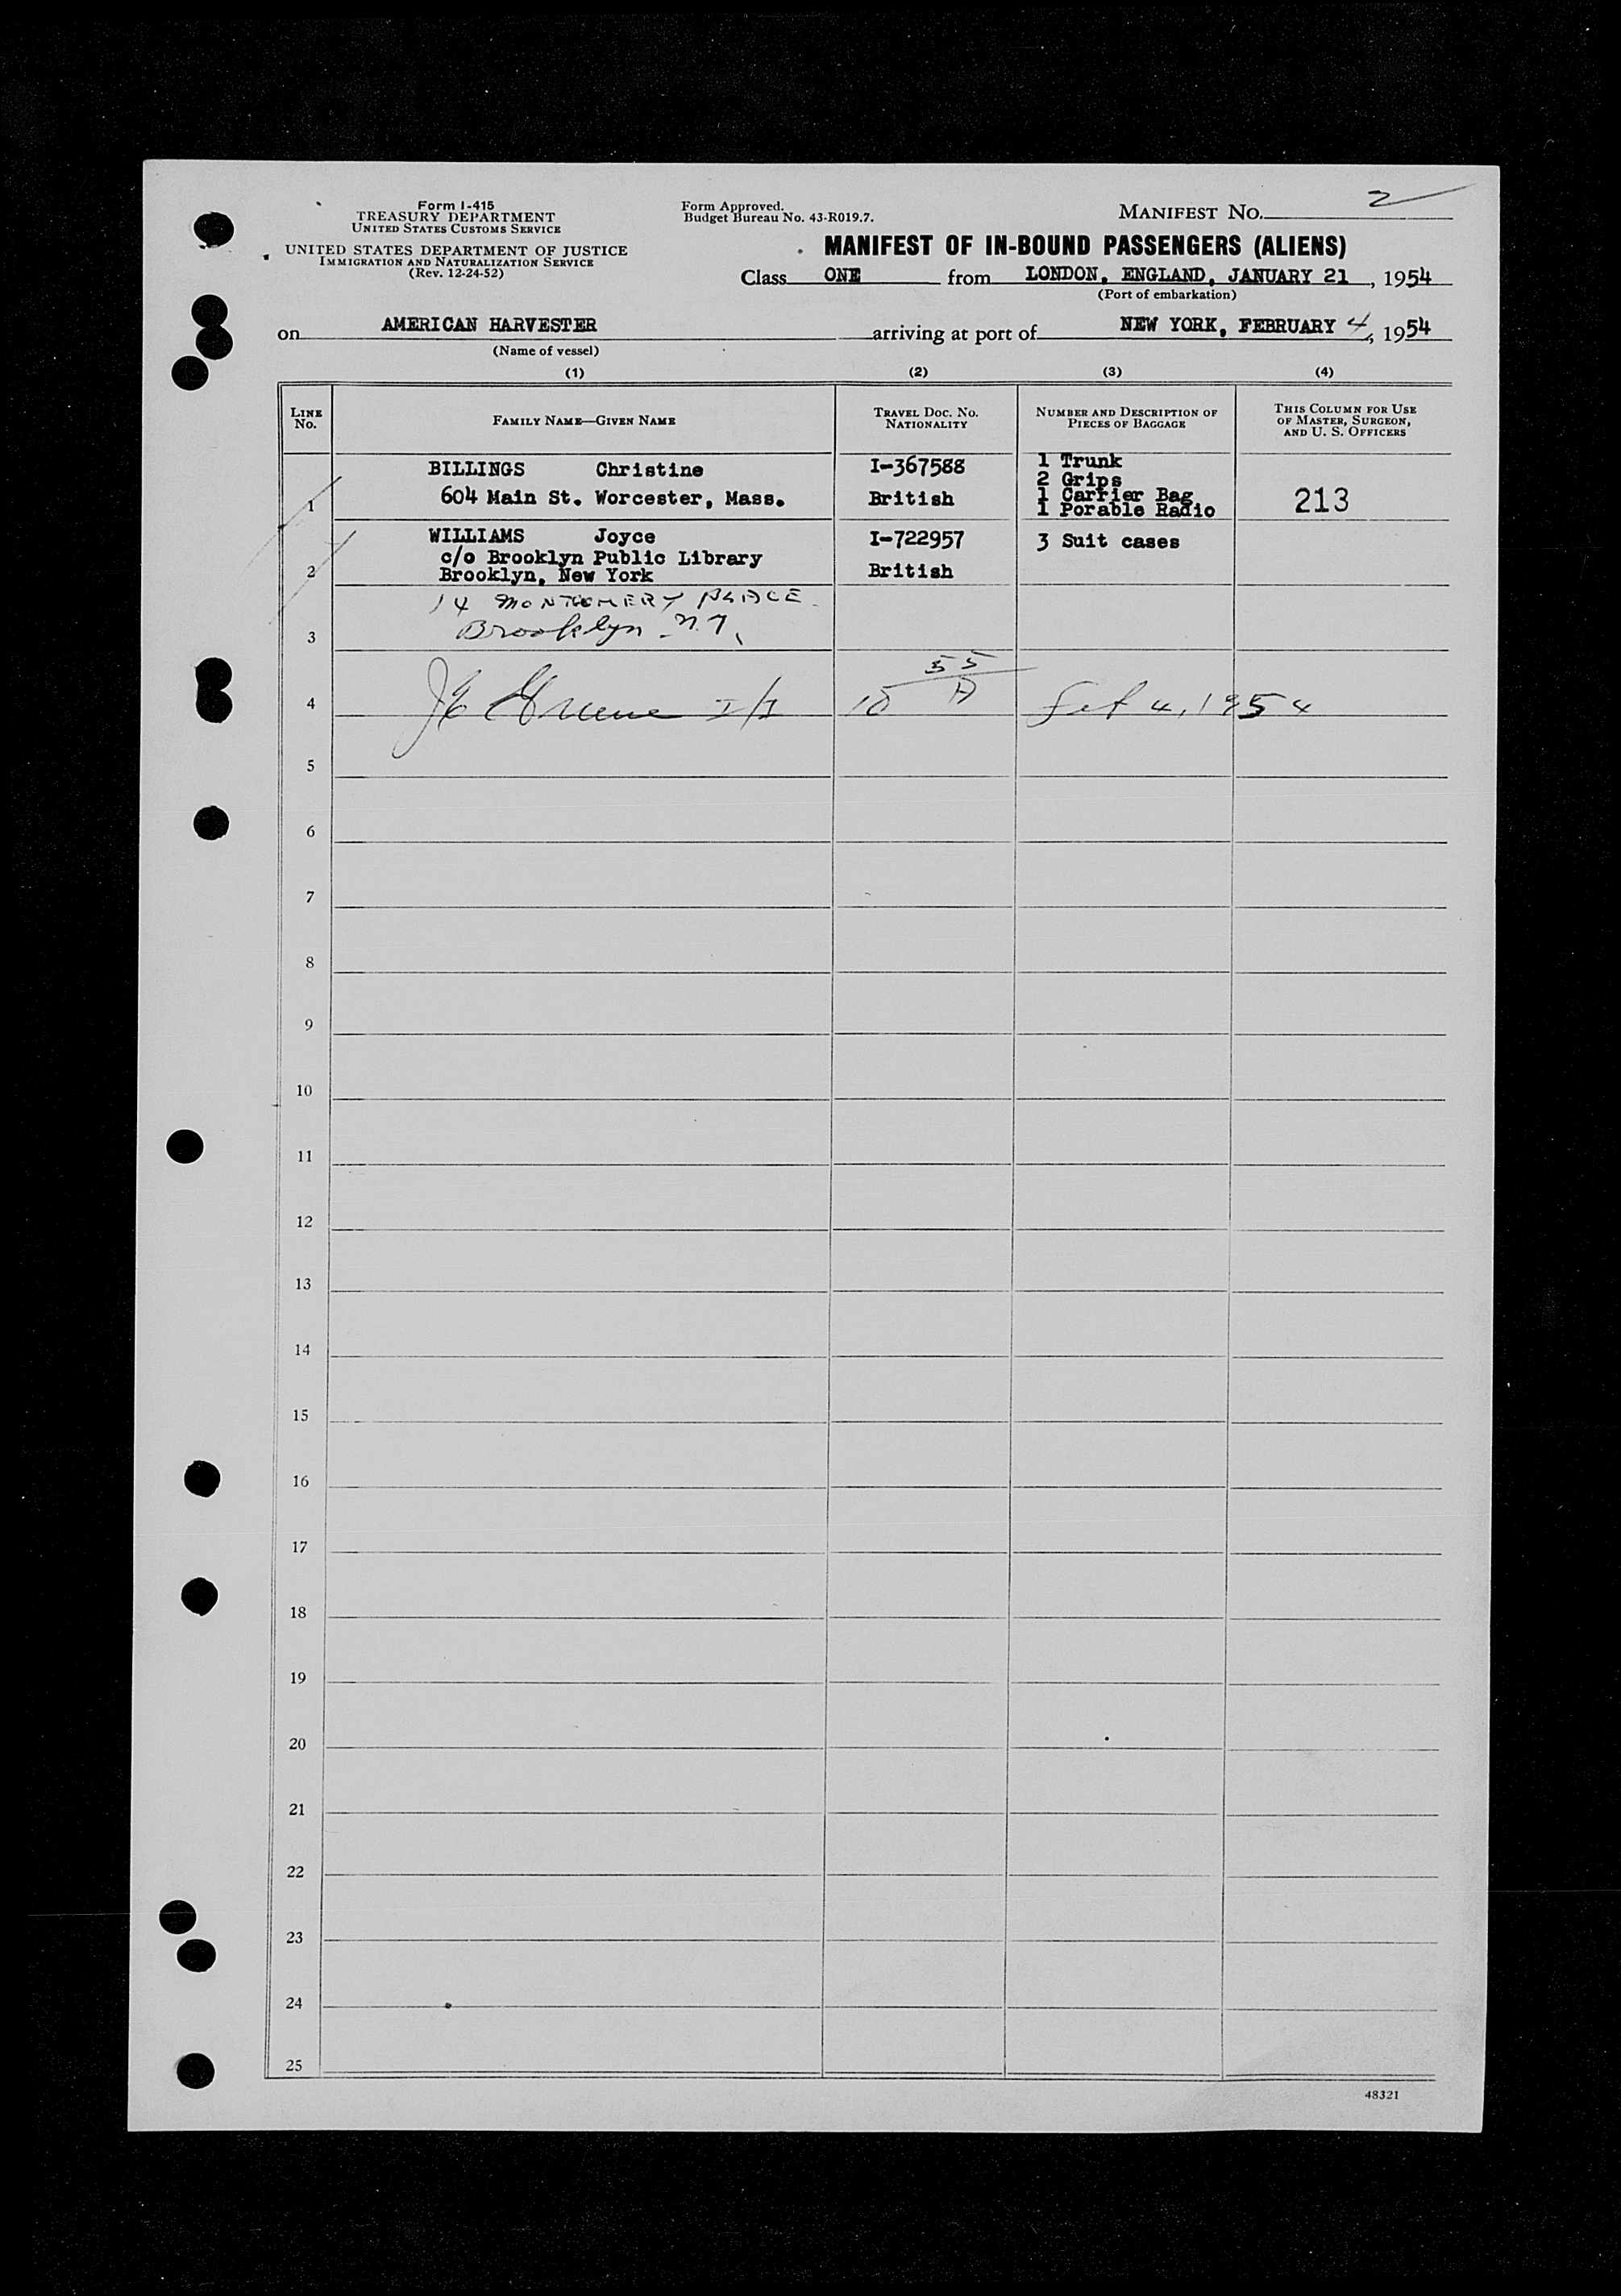 Form I-415
TREASURY DEPARTMENT
UNITED STATES CUSTOMS SERVICE
UNITED STATES DEPARTMENT OF JUSTICE
IMMIGRATION AND NATURALIZATION SERVICE
(Rev. 12-24-52)
Form Approved.
Budget Bureau No. 43-R019.7.
MANIFEST NO. 2
MANIFEST OF IN-BOUND PASSENGERS (ALIENS)
Class ONE from LONDON, ENGLAND, JANUARY 21, 1954
(Port of embarkation)
on AMERICAN HARVESTER arriving at port of NEW YORK, FEBRUARY 4, 1954
(Name of vessel)
(1) (2) (3) (4)
LINE NO. FAMILY NAME—GIVEN NAME TRAVEL DOC. NO. NATIONALITY NUMBER AND DESCRIPTION OF PIECES OF BAGGAGE THIS COLUMN FOR USE OF MASTER, SURGEON, AND U. S. OFFICERS
1 BILLINGS Christine I-367588 1 Trunk
2 Grips
604 Main St. Worcester, Mass. British 1 Carrier Bag 213
1 Porable Radio
2 WILLIAMS Joyce I-722957 3 Suit cases
c/o Brooklyn Public Library
Brooklyn, New York British
14 MONTGOMERY PLACE
3 Brooklyn N.Y.
4 Greene I/I 10 55 A Feb 4, 1954
5
6
7
8
9
10
11
12
13
14
15
16
17
18
19
20
21
22
23
24
25
48321